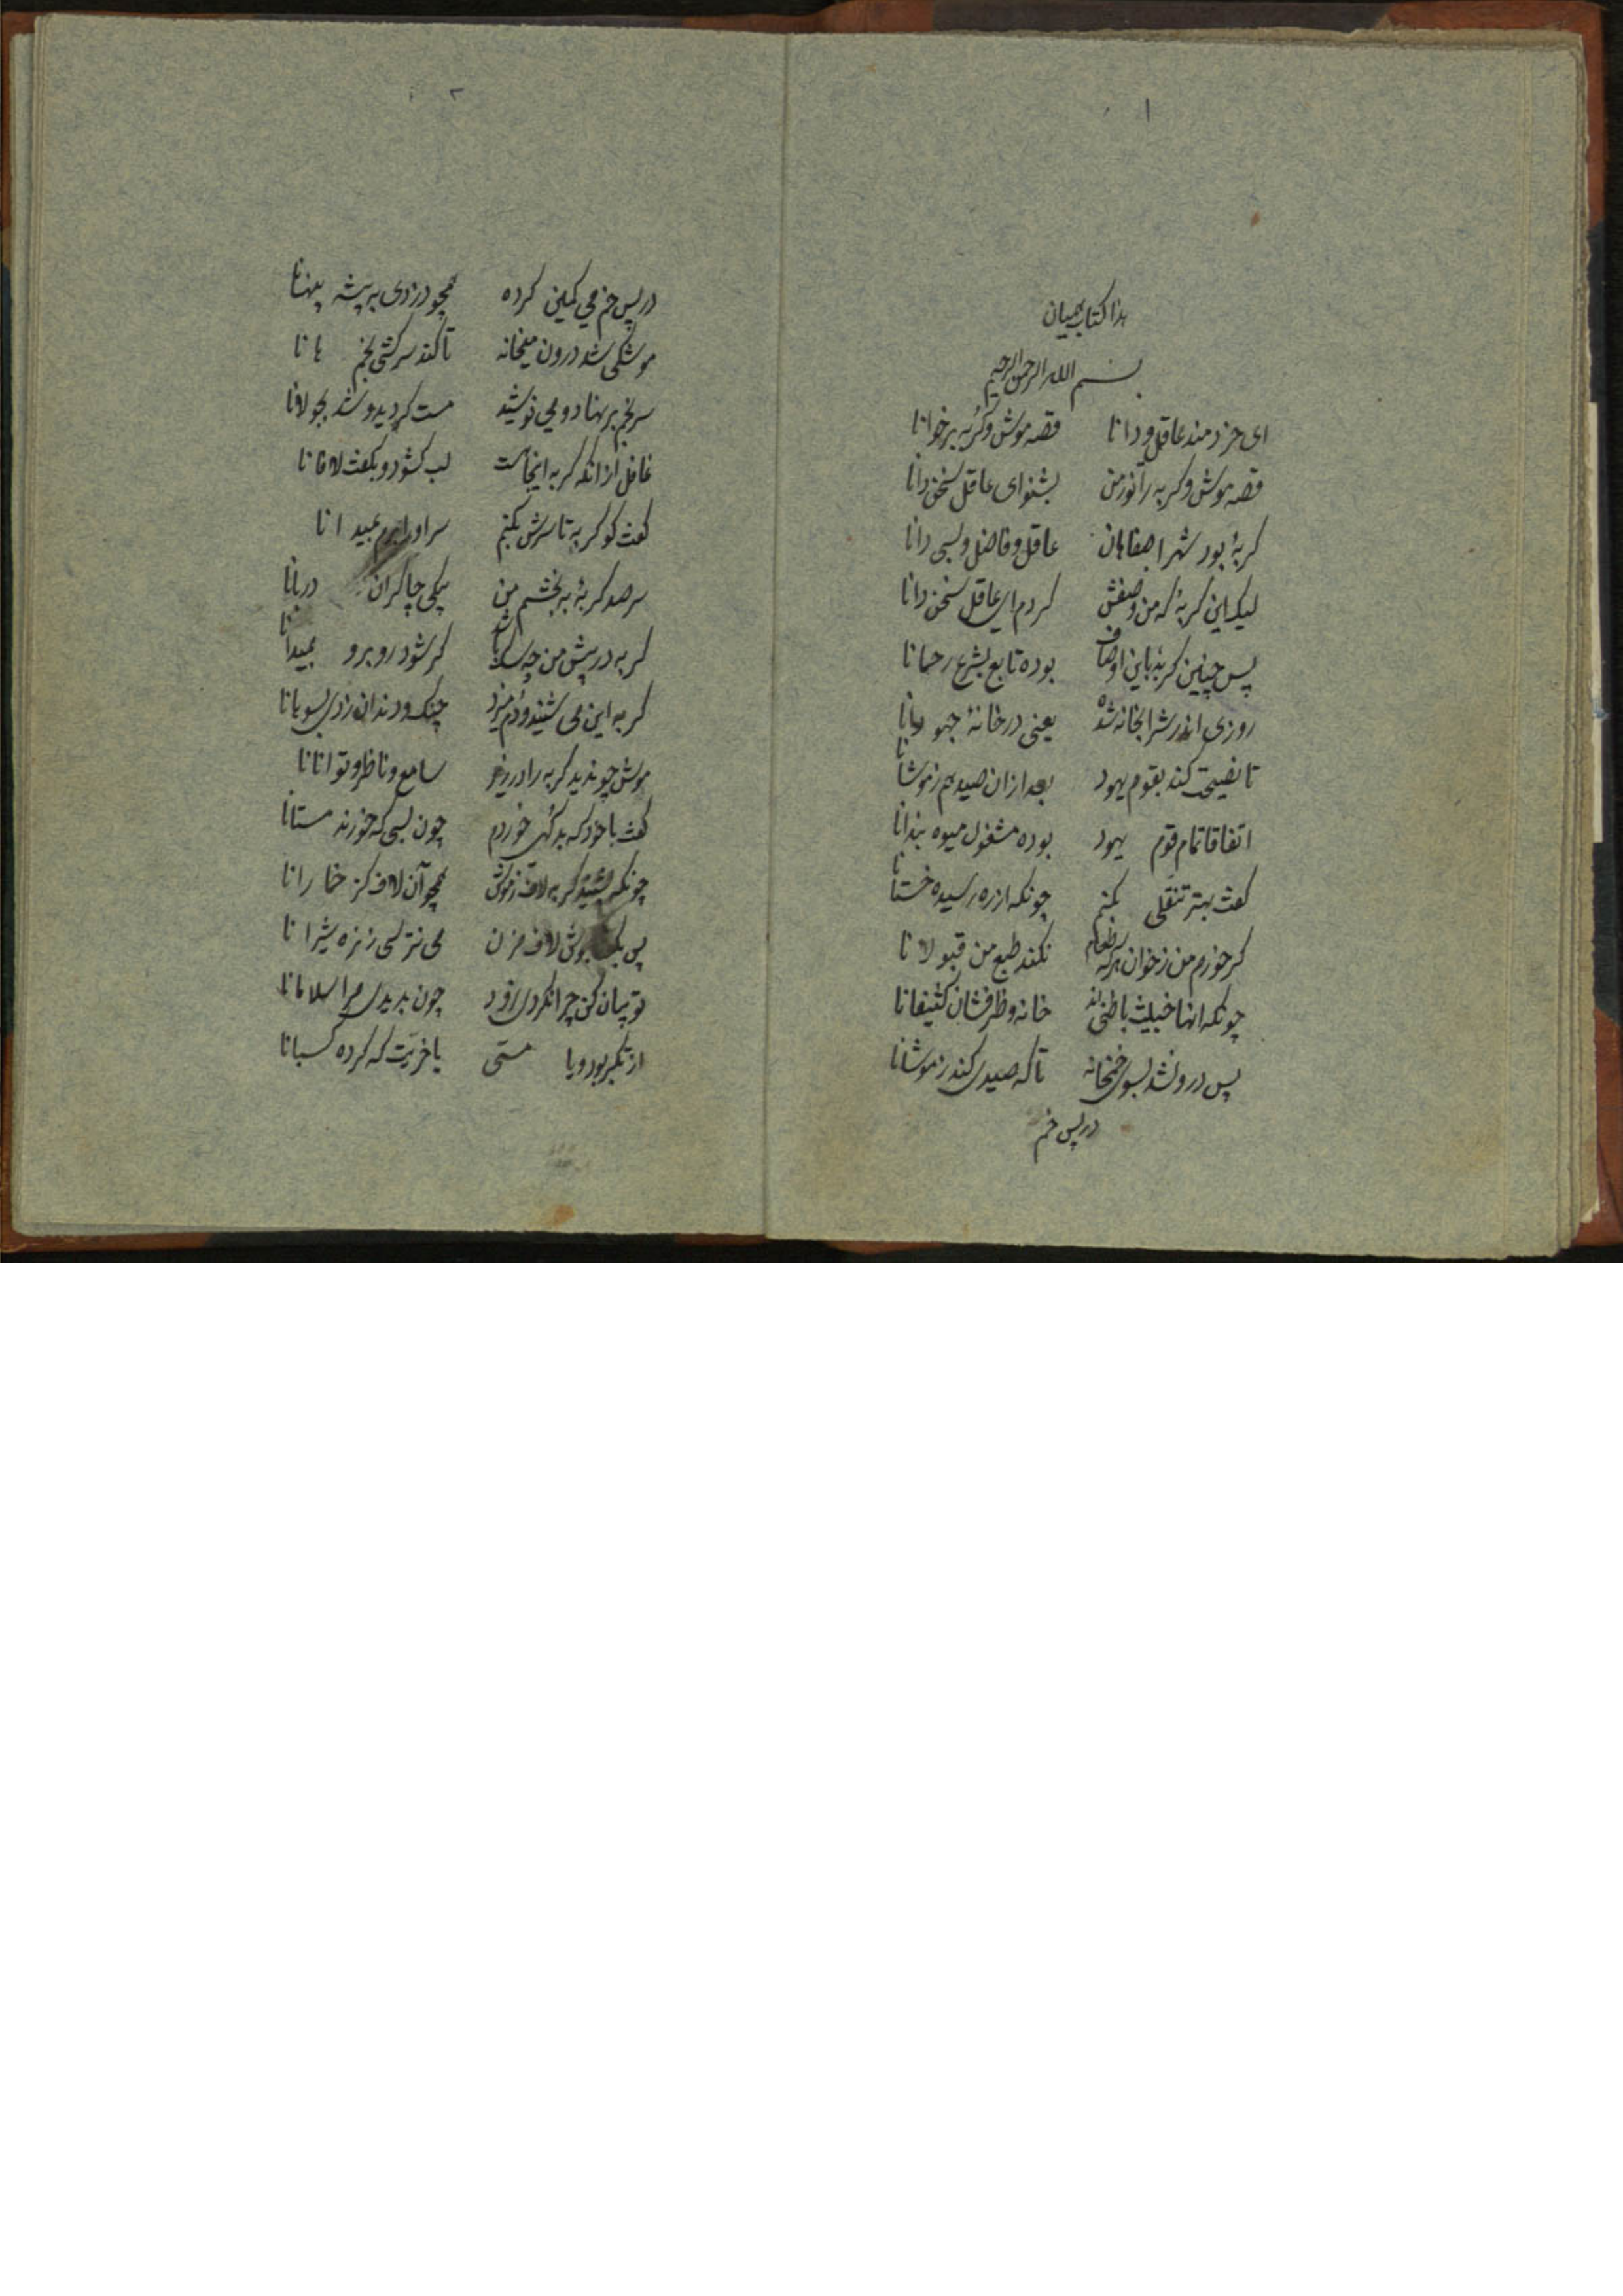 ۱
هذا کتاب همیان
بسم الله الرحمن الرحیم
ای خردمند عاقل و دانا قصه موش و گربه برخوانا
قصه موش و گربه را نو ز من بشنو ای عاقل سخن دانا
گربهٔ بود شهر اصفاهان عاقل و فاضل و بسی دانا
لیک این گربهٔ که من وصفش کردم ای عاقل سخن دانا
پس چنین گربهٔ باین اوصاف بوده تابع بشرع رحمانا
روزی اندر شرابخانه شده یعنی در خانهٔ جهودانا
تا نصیحت کند بقوم یهود بعد ازان صید هم ز موشانا
اتفاقا تمام قوم یهود بوده مشغول میوه بندانا
گفت بهتر تنقلی بکنم چونکه از ره رسیده خستانا
گر خورم من ز خوان هر که طعام نکند طبع من قبولانا
چونکه انها خبیث باطنی اند خانه و ظرفشان کثیفانا
پس درون شد بسوی خمخانه تا که صیدی کند ز موشانا
در پس خم
۲
در پس خم می کمین کرده همچو دزدی به پشه پنهانا
موشکی شد درون میخانه تا کند سر کشی بخم هانا
سر بخم بر نهاد و می نوشید مست گردید و شد بجولانا
غافل از انکه گربه اینجاست لب کشود و بگفت لافانا
گفت کو گربه تا سرش بکنم سر او را برم بمیدانا
سر صد گربهٔ به بخشم من بیکی چاکران دربانا
گربه در پیش من چه سگ باشد گر شود روبرو بمیدانا
گربه این می شنید و دم میزد چنگ و دندان زدی بسوهانا
موش چو ندید گربه را در رو سامع و ناظر و توانانا
گفت با خود که بد گهی خوردم چون بسی که خورند مستانا
چونکه بشنید گربه لاف ز موش همچو آن لاف کز خمارانا
پس بموش لاف مزن می نترسی ز نره شیرانا
تو بیان کن چرا نکردی زود چون بدیدی مرا سلامانا
از تکبر بود و یا مستی یا خریت که کرده کسبانا